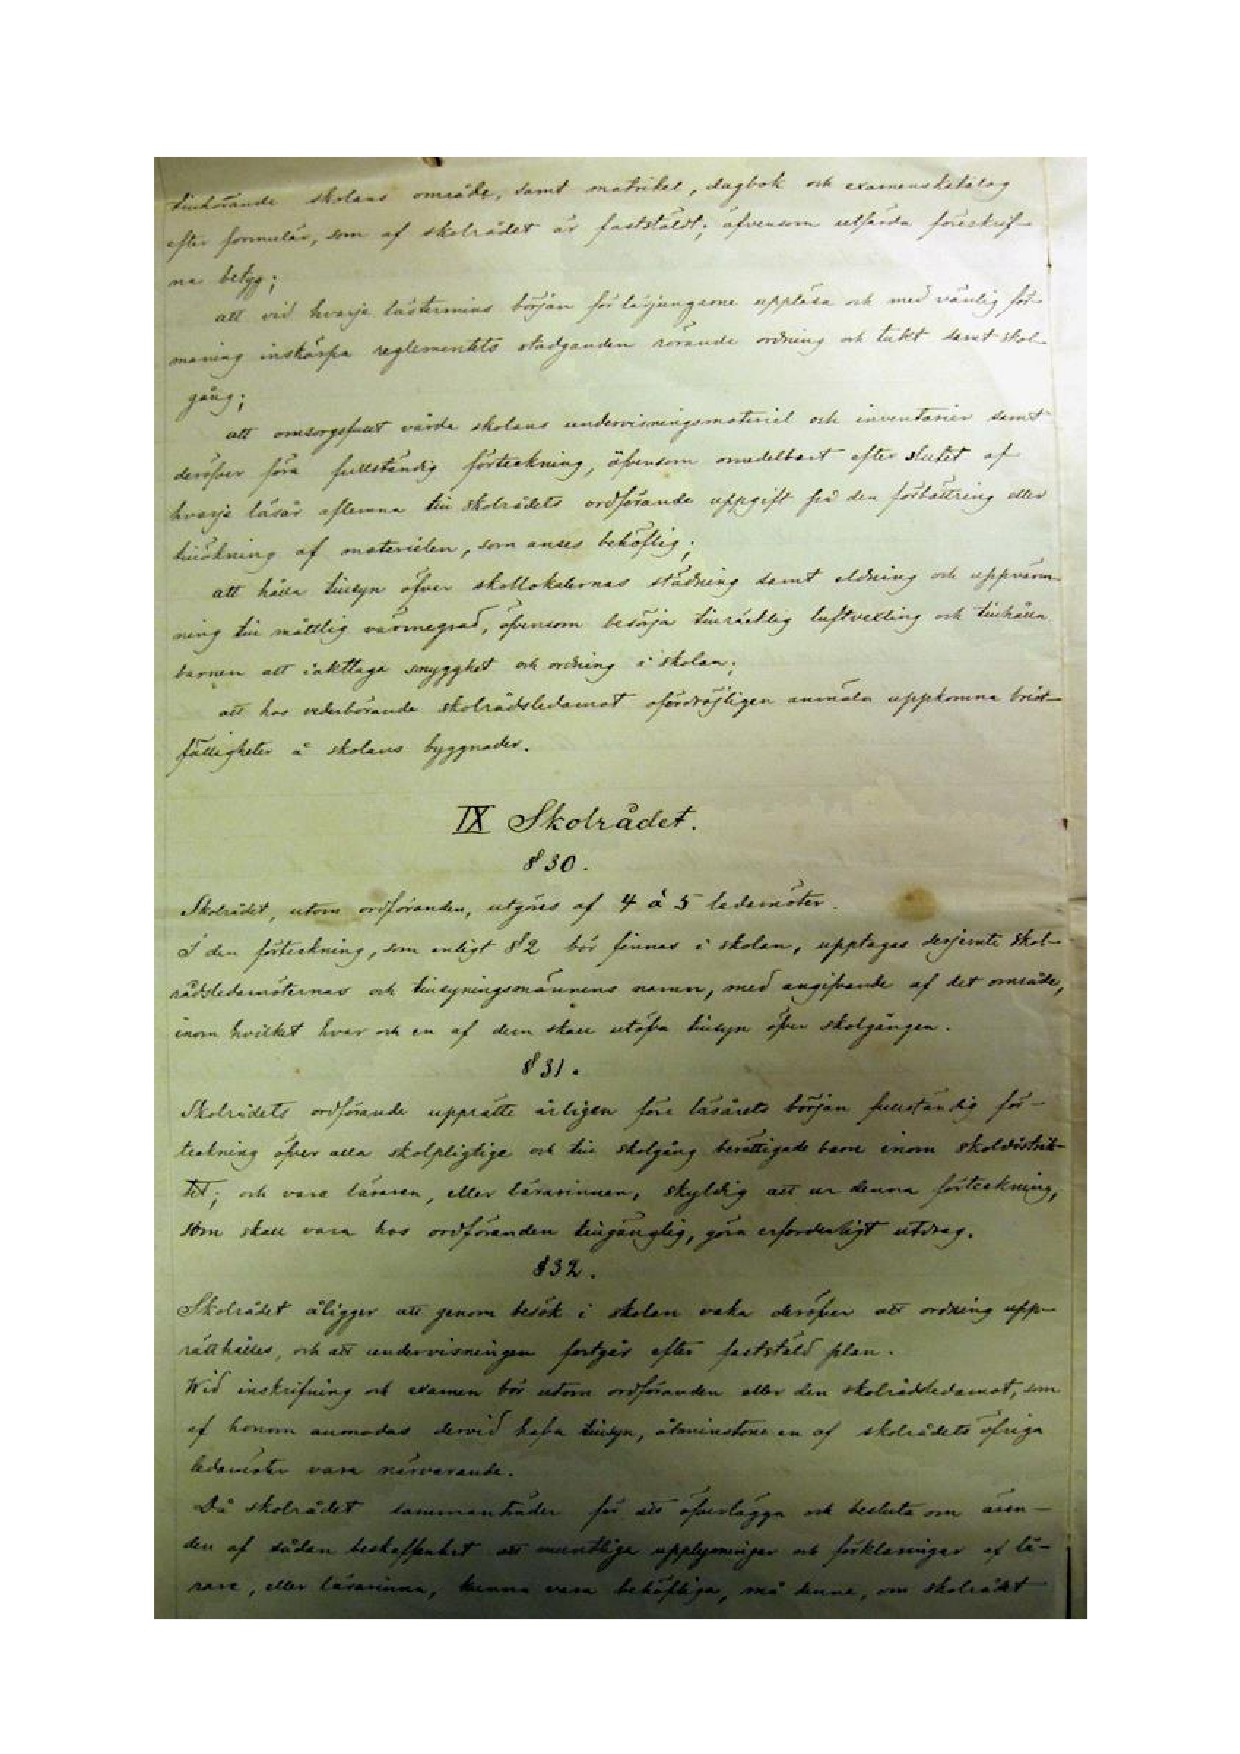 tillhörande skolans område, samt matrikel, dagbok och examenskatalog
efter formulär, som af skolrådet är fastställdt; äfvensom utfärda föreskrif-
na betyg;
att vid hvarje lästermins början för lärjungarne uppläsa och med vänlig för-
maning inskärpa reglementets stadganden rörande ordning och tukt samt skol-
gång;
att omsorgsfullt vårda skolans undervisningsmateriel och inventarier samt
deröfver föra fullständig förteckning, äfvensom omedelbart efter slutet af
hvarje läsår aflemna till skolrådets ordförande uppgift på den förbättring eller
tillökning af materielen, som anses behöflig;
att hålla tillsyn öfver skollokalernas städning samt eldning och uppvärm-
ning till måttlig värmegrad, äfvensom besörja tillräcklig luftvexling och tillhålla
barnen att iakttaga snygghet och ordning i skolan;
att hos vederbörande skolrådsledamot ofördröjligen anmäla uppkomna bröst-
fälligheter å skolans byggnader.
IX Skolrådet.
§ 30.
Skolrådet, utom ordföranden, utgöres af 4 à 5 ledamöter.
I den förteckning, som enligt § 2 bör finnas i skolan, upptages desjemte skol-
rådsledamöternas och tillsyningsmännens namn, med angifvande af det område,
inom hvilket hvar och en af dem skall utöfva tillsyn öfver skolgången.
§ 31.
Skolrådets ordförande upprätte årligen före läsårets början fullständig för-
teckning öfver alla skolpligtige och till skolgång berättigade barn inom skoldistrik-
tet; och vare läraren, eller lärarinnan, skyldig att ur denna förteckning,
som skall vara hos ordföranden tillgänglig, göra erforderligt utdrag.
§ 32.
Skolrådet åligger att genom besök i skolan vaka deröfver att ordning upp-
rätthålles, och att undervisningen fortgår efter fastställd plan.
Wid inskrifning och examen bör utom ordföranden eller den skolrådsledamot, som
af honom anmodas dervid hafva tillsyn, åtminstone en af skolrådets öfriga
ledamöter vara närvarande.
Då skolrådet sammanträder för att öfverlägga och besluta om ären-
den af sådan beskaffenhet att muntliga upplysningar och förklaringar af lä-
rare, eller lärarinna, kunna vara behöfliga, må denne, om skolrådet